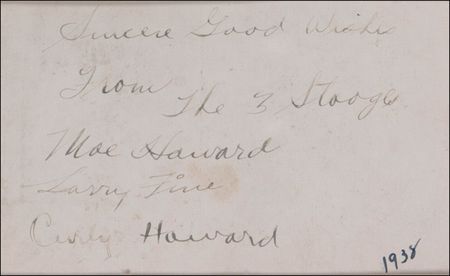 Sincere Good Wishes
From The 3 Stooges
Moe Howard
Larry Fine
Curly Howard
1938